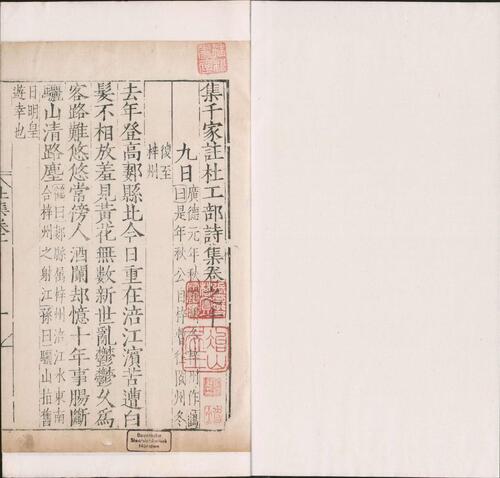 集千家註杜工部詩集卷之十
九日
廣德元年秋梓州作鶴
曰是年秋公自梓暫往閬州冬
復至
梓州
去年登高郪縣北今日重在涪江濱苦遭白
髮不相放羞見黃花無數新世亂鬱鬱久爲
客路難悠悠常傍人酒闌却憶十年事腸斷
驪山清路塵
曰郪縣屬梓州涪江水東南
合梓州之射江孫曰驪山指舊
日明皇
遊幸也
Bayerische
Staatsbibliothek
München